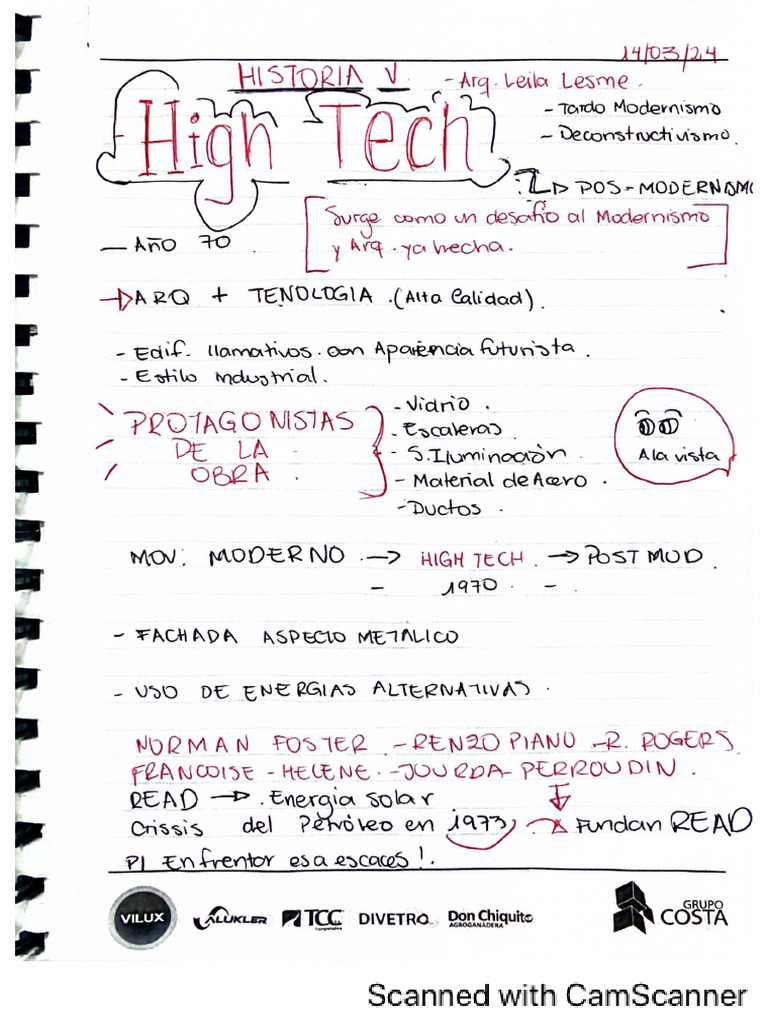 14/03/24
HISTORIA V - Arq. Leila Lesme.
High Tech
- Tardo Modernismo
- Deconstructivismo.
POS-MODERNISMO
Surge como un desafío al Modernismo
y Arq. ya hecha.
- Año 70
ARQ + TENOLOGIA. (Alta Calidad).
- Edif. llamativos. con Apariencia futurista.
- Estilo Industrial.
PROTAGONISTAS
DE LA
OBRA.
- Vidrio.
- Escaleras
- S. Iluminación
- Material de Acero.
- Ductos.
A la vista
MOV: MODERNO → HIGH TECH. → POST MOD.
- 1970. -
- FACHADA ASPECTO METALICO
- USO DE ENERGIAS ALTERNATIVAS.
NORMAN FOSTER - RENZO PIANO - R. ROGERS.
FRANCOISE - HELENE. - JOURDA - PERROUDIN.
READ → Energia solar
Crissis del Petróleo en 1973 → Fundan READ
P/ Enfrentar esa escaces!.
VILUX ALUKLER TCC Transportadora DIVETRO Don Chiquito AGROGANADERA GRUPO COSTA
Scanned with CamScanner